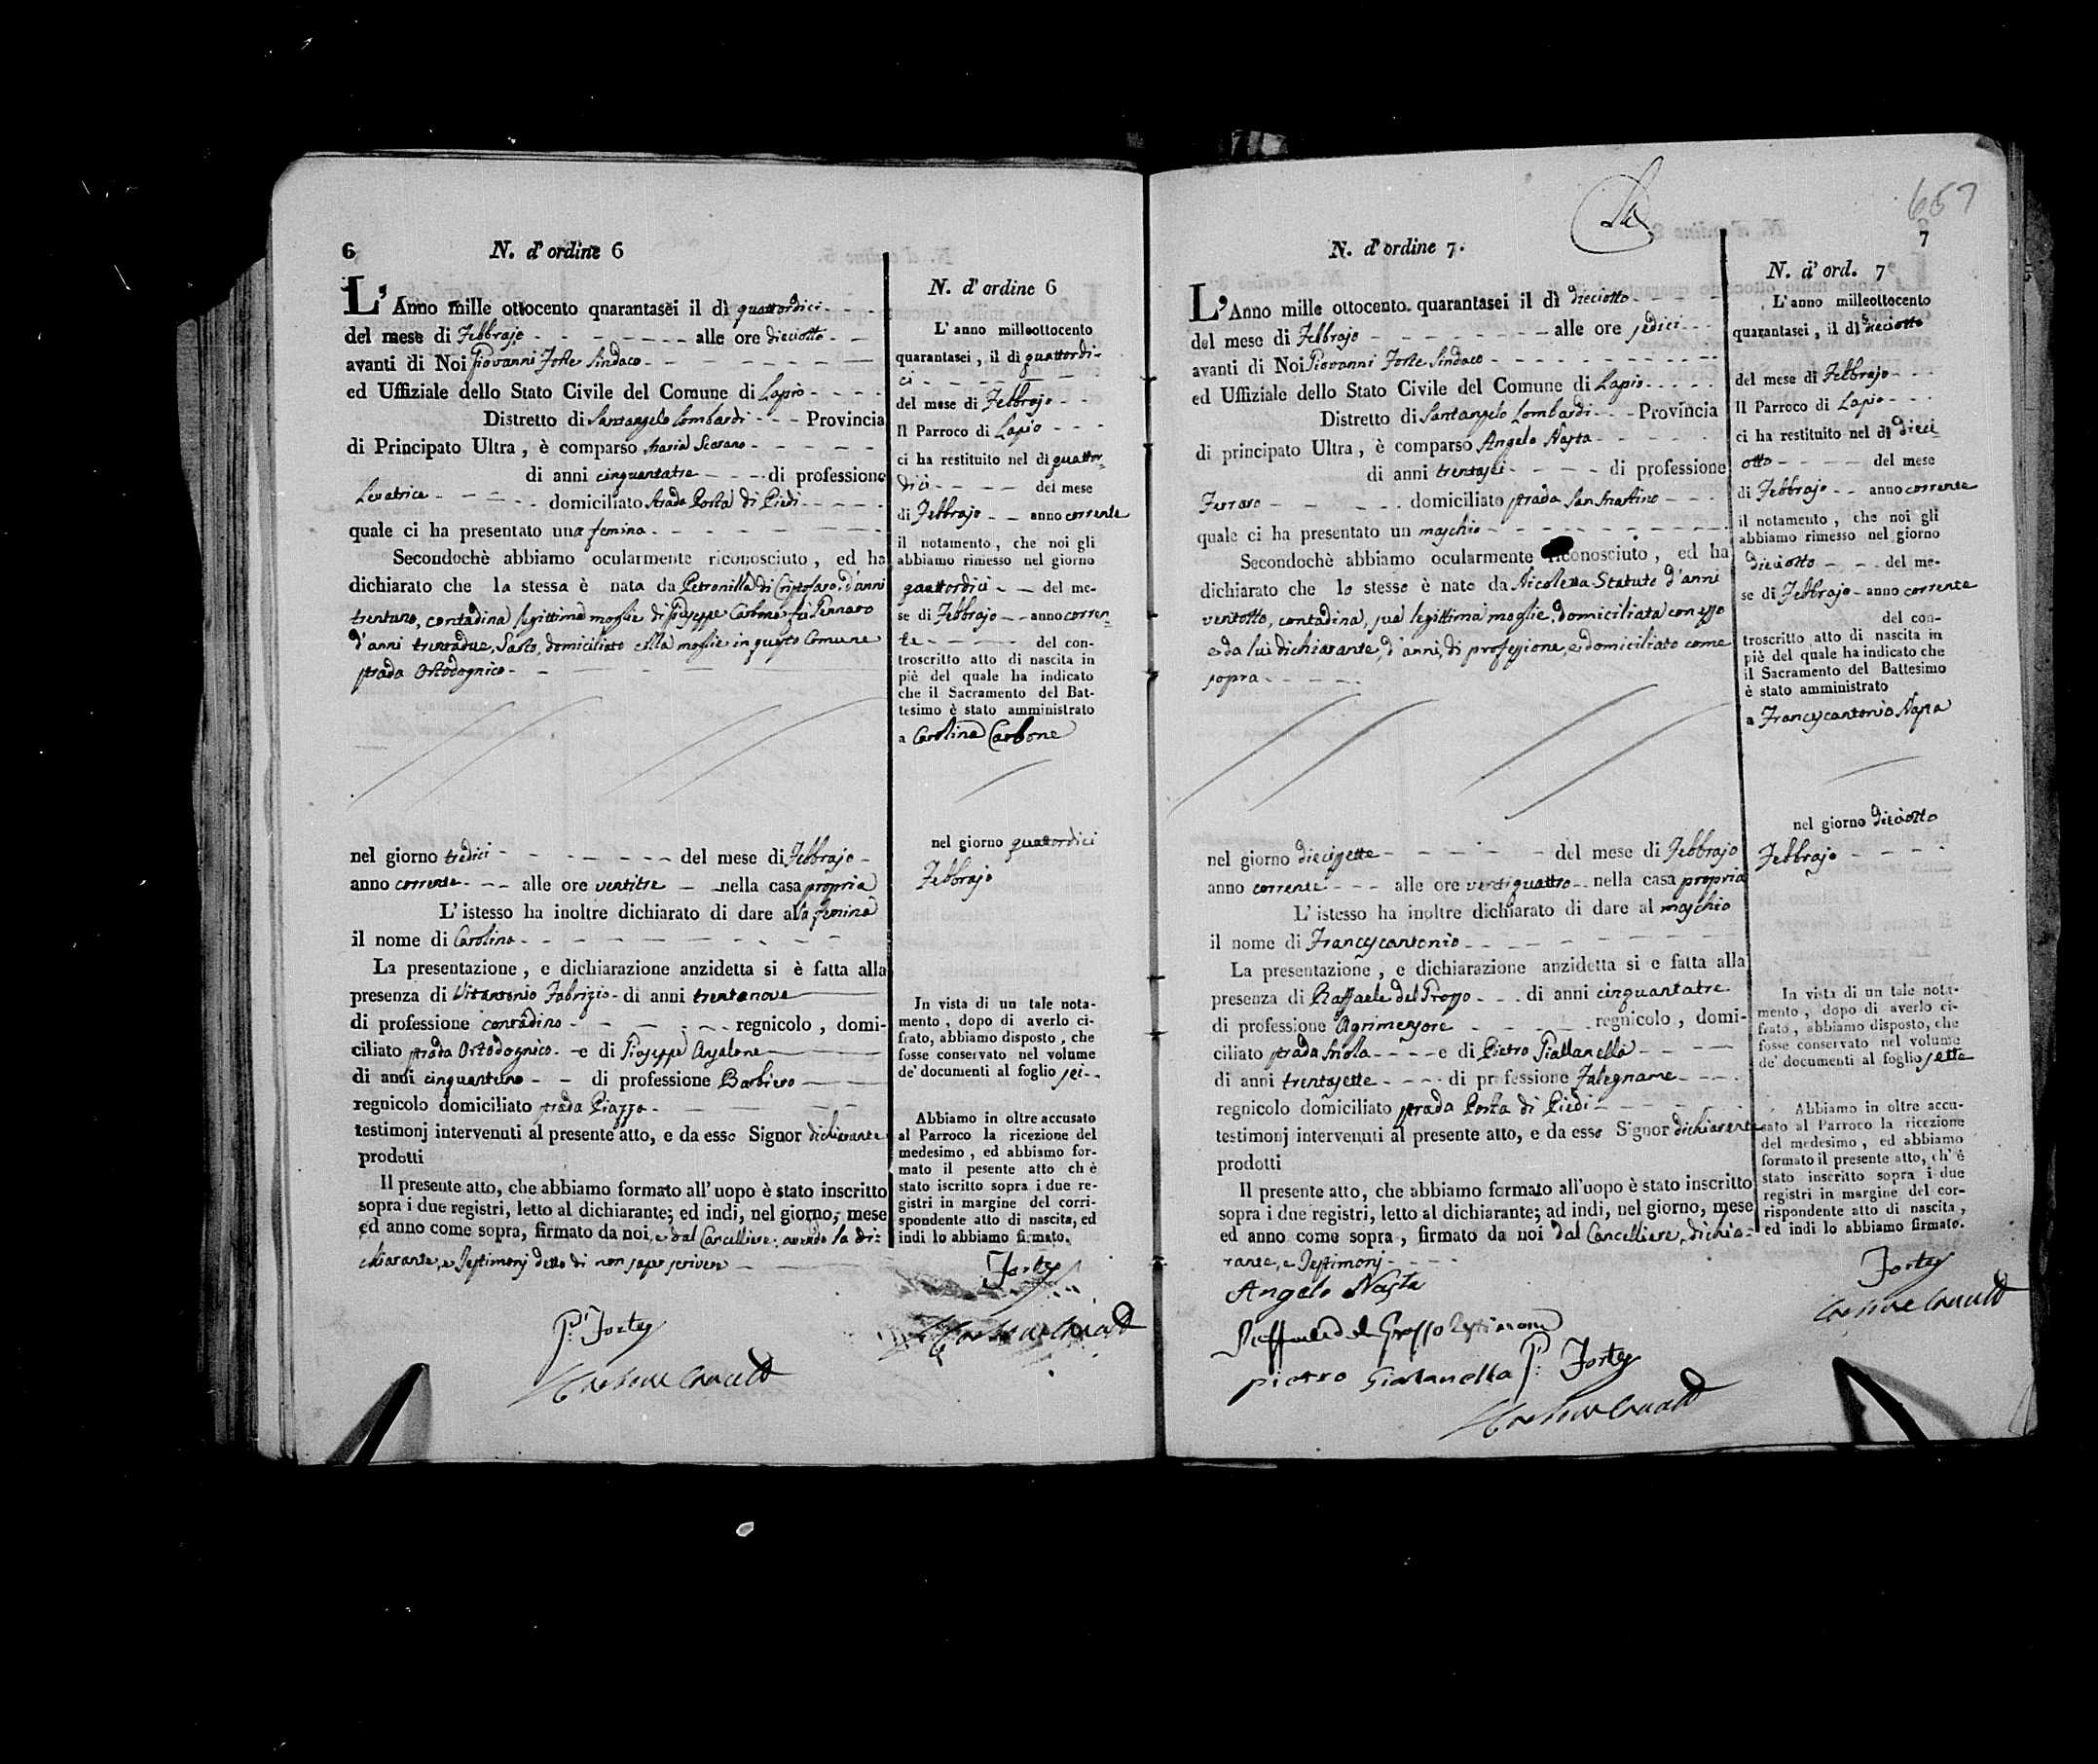 6
N. d' ordine 6
L' Anno mille ottocento qnarantasei il dì quattordici
del mese di Febbrajo alle ore dieciotto
avanti di Noi Giovanni Forte Sindaco
ed Uffiziale dello Stato Civile del Comune di Lapio
Distretto di Santangelo Lombardi Provincia
di Principato Ultra, è comparso Maria Scarano
di anni cinquantatre di professione
Levatrice domiciliato strada Porta di Piedi
quale ci ha presentato una femina
Secondochè abbiamo ocularmente riconosciuto, ed ha
dichiarato che la stessa è nata da Petronilla di Cristofaro d'anni
trentuno, contadina legittima moglie di Giuseppe Carbone fu Gennaro
d'anni trentadue, Sarto, domiciliato colla moglie in questo Comune
strada Ortodognico
nel giorno tredici del mese di Febbrajo
anno corrente alle ore ventitre nella casa propria
L' istesso ha inoltre dichiarato di dare alla femina
il nome di Carolina
La presentazione, e dichiarazione anzidetta si è fatta alla
presenza di Vitantonio Fabrizio di anni trentanove
di professione contadino regnicolo, domi-
ciliato strada Ortodognico e di Giuseppe Anzalone
di anni cinquantuno di professione Barbiero
regnicolo domiciliato strada Piazza
testimonj intervenuti al presente atto, e da esso Signor dichiarante
prodotti
Il presente atto, che abbiamo formato all' uopo è stato inscritto
sopra i due registri, letto al dichiarante; ed indi, nel giorno, mese
ed anno come sopra, firmato da noi, e dal Cancelliere, avendo la di-
chiarante, e Testimonj detto di non saper scrivere
G. Forte
Carbone Cancell
N. d' ordine 6
L' anno milleottocento
quarantasei, il dì quattordi-
ci
del mese di Febbrajo
Il Parroco di Lapio
ci ha restituito nel dì quattor-
dici del mese
di Febbrajo anno corrente
il notamento, che noi gli
abbiamo rimesso nel giorno
quattordici del me-
se di Febbrajo anno corren-
te del con-
troscritto atto di nascita in
piè del quale ha indicato
che il Sacramento del Bat-
tesimo è stato amministrato
a Carolina Carbone
nel giorno quattordici
Febbrajo
In vista di un tale nota-
mento, dopo di averlo ci-
frato, abbiamo disposto, che
fosse conservato nel volume
de' documenti al foglio sei
Abbiamo in oltre accusato
al Parroco la ricezione del
medesimo, ed abbiamo for-
mato il pesente atto ch è
stato iscritto sopra i due re-
gistri in margine del corri-
spondente atto di nascita, ed
indi lo abbiamo firmato.
Forte
Carbone Cancell
657
7
N. d' ordine 7.
L' Anno mille ottocento. quarantasei il dì dieciotto
del mese di Febbrajo alle ore sedici
avanti di Noi Giovanni Forte Sindaco
ed Uffiziale dello Stato Civile del Comune di Lapio
Distretto di Santangelo Lombardi Provincia
di principato Ultra, è comparso Angelo Nasta
di anni trentasei di professione
Ferraro domiciliato strada San Martino
quale ci ha presentato un maschio
Secondochè abbiamo ocularmente riconosciuto, ed ha
dichiarato che lo stesso è nato da Nicoletta Statuto d'anni
ventotto, contadina, sua legittima moglie, domiciliata con esso
e da lui dichiarante, d'anni, di professione, e domiciliato come
sopra
nel giorno diecissette del mese di Febbrajo
anno corrente alle ore ventiquattro nella casa propria
L' istesso ha inoltre dichiarato di dare al maschio
il nome di Francescantonio
La presentazione, e dichiarazione anzidetta si e fatta alla
presenza di Raffaele del Grosso di anni cinquantatre
di professione Agrimensore regnicolo, domi-
ciliato strada e di Pietro Giallanella
di anni trentasette di professione Falegname
regnicolo domiciliato strada Porta di Piedi
testimonj intervenuti al presente atto, e da esso Signor dichiarante
prodotti
Il presente atto, che abbiamo formato all'uopo è stato inscritto
sopra i due registri, letto al dichiarante; ad indi, nel giorno, mese
ed anno come sopra, firmato da noi dal Cancelliere, dichia-
rante, e Testimonj
Angelo Nasta
Raffaele del Grosso Testimone
pietro Gialanella G. Forte
Carbone Cancell
N. d' ord. 7
L' anno milleottocento
quarantasei, il dì dieciotto
del mese di Febbrajo
Il Parroco di Lapio
ci ha restituito nel dì dieci-
otto del mese
di Febbrajo anno corrente
il notamento, che noi gli
abbiamo rimesso nel giorno
dieciotto del me-
se di Febbrajo anno corrente
del con-
troscritto atto di nascita in
piè del quale ha indicato che
il Sacramento del Battesimo
è stato amministrato
a Francescantonio Nasta
nel giorno dieciotto
Febbrajo
In vista di un tale nota-
mento, dopo di averlo ci-
frato, abbiamo disposto, che
fosse conservato nel volume
de' documenti al foglio sette
Abbiamo in oltre accu-
sato al Parroco la ricezione
del medesimo, ed abbiamo
formato il presente atto, ch' è
stato inscritto sopra i due
registri in margine del cor-
rispondente atto di nascita,
ed indi lo abbiamo firmato.
Forte
Carbone Cancell